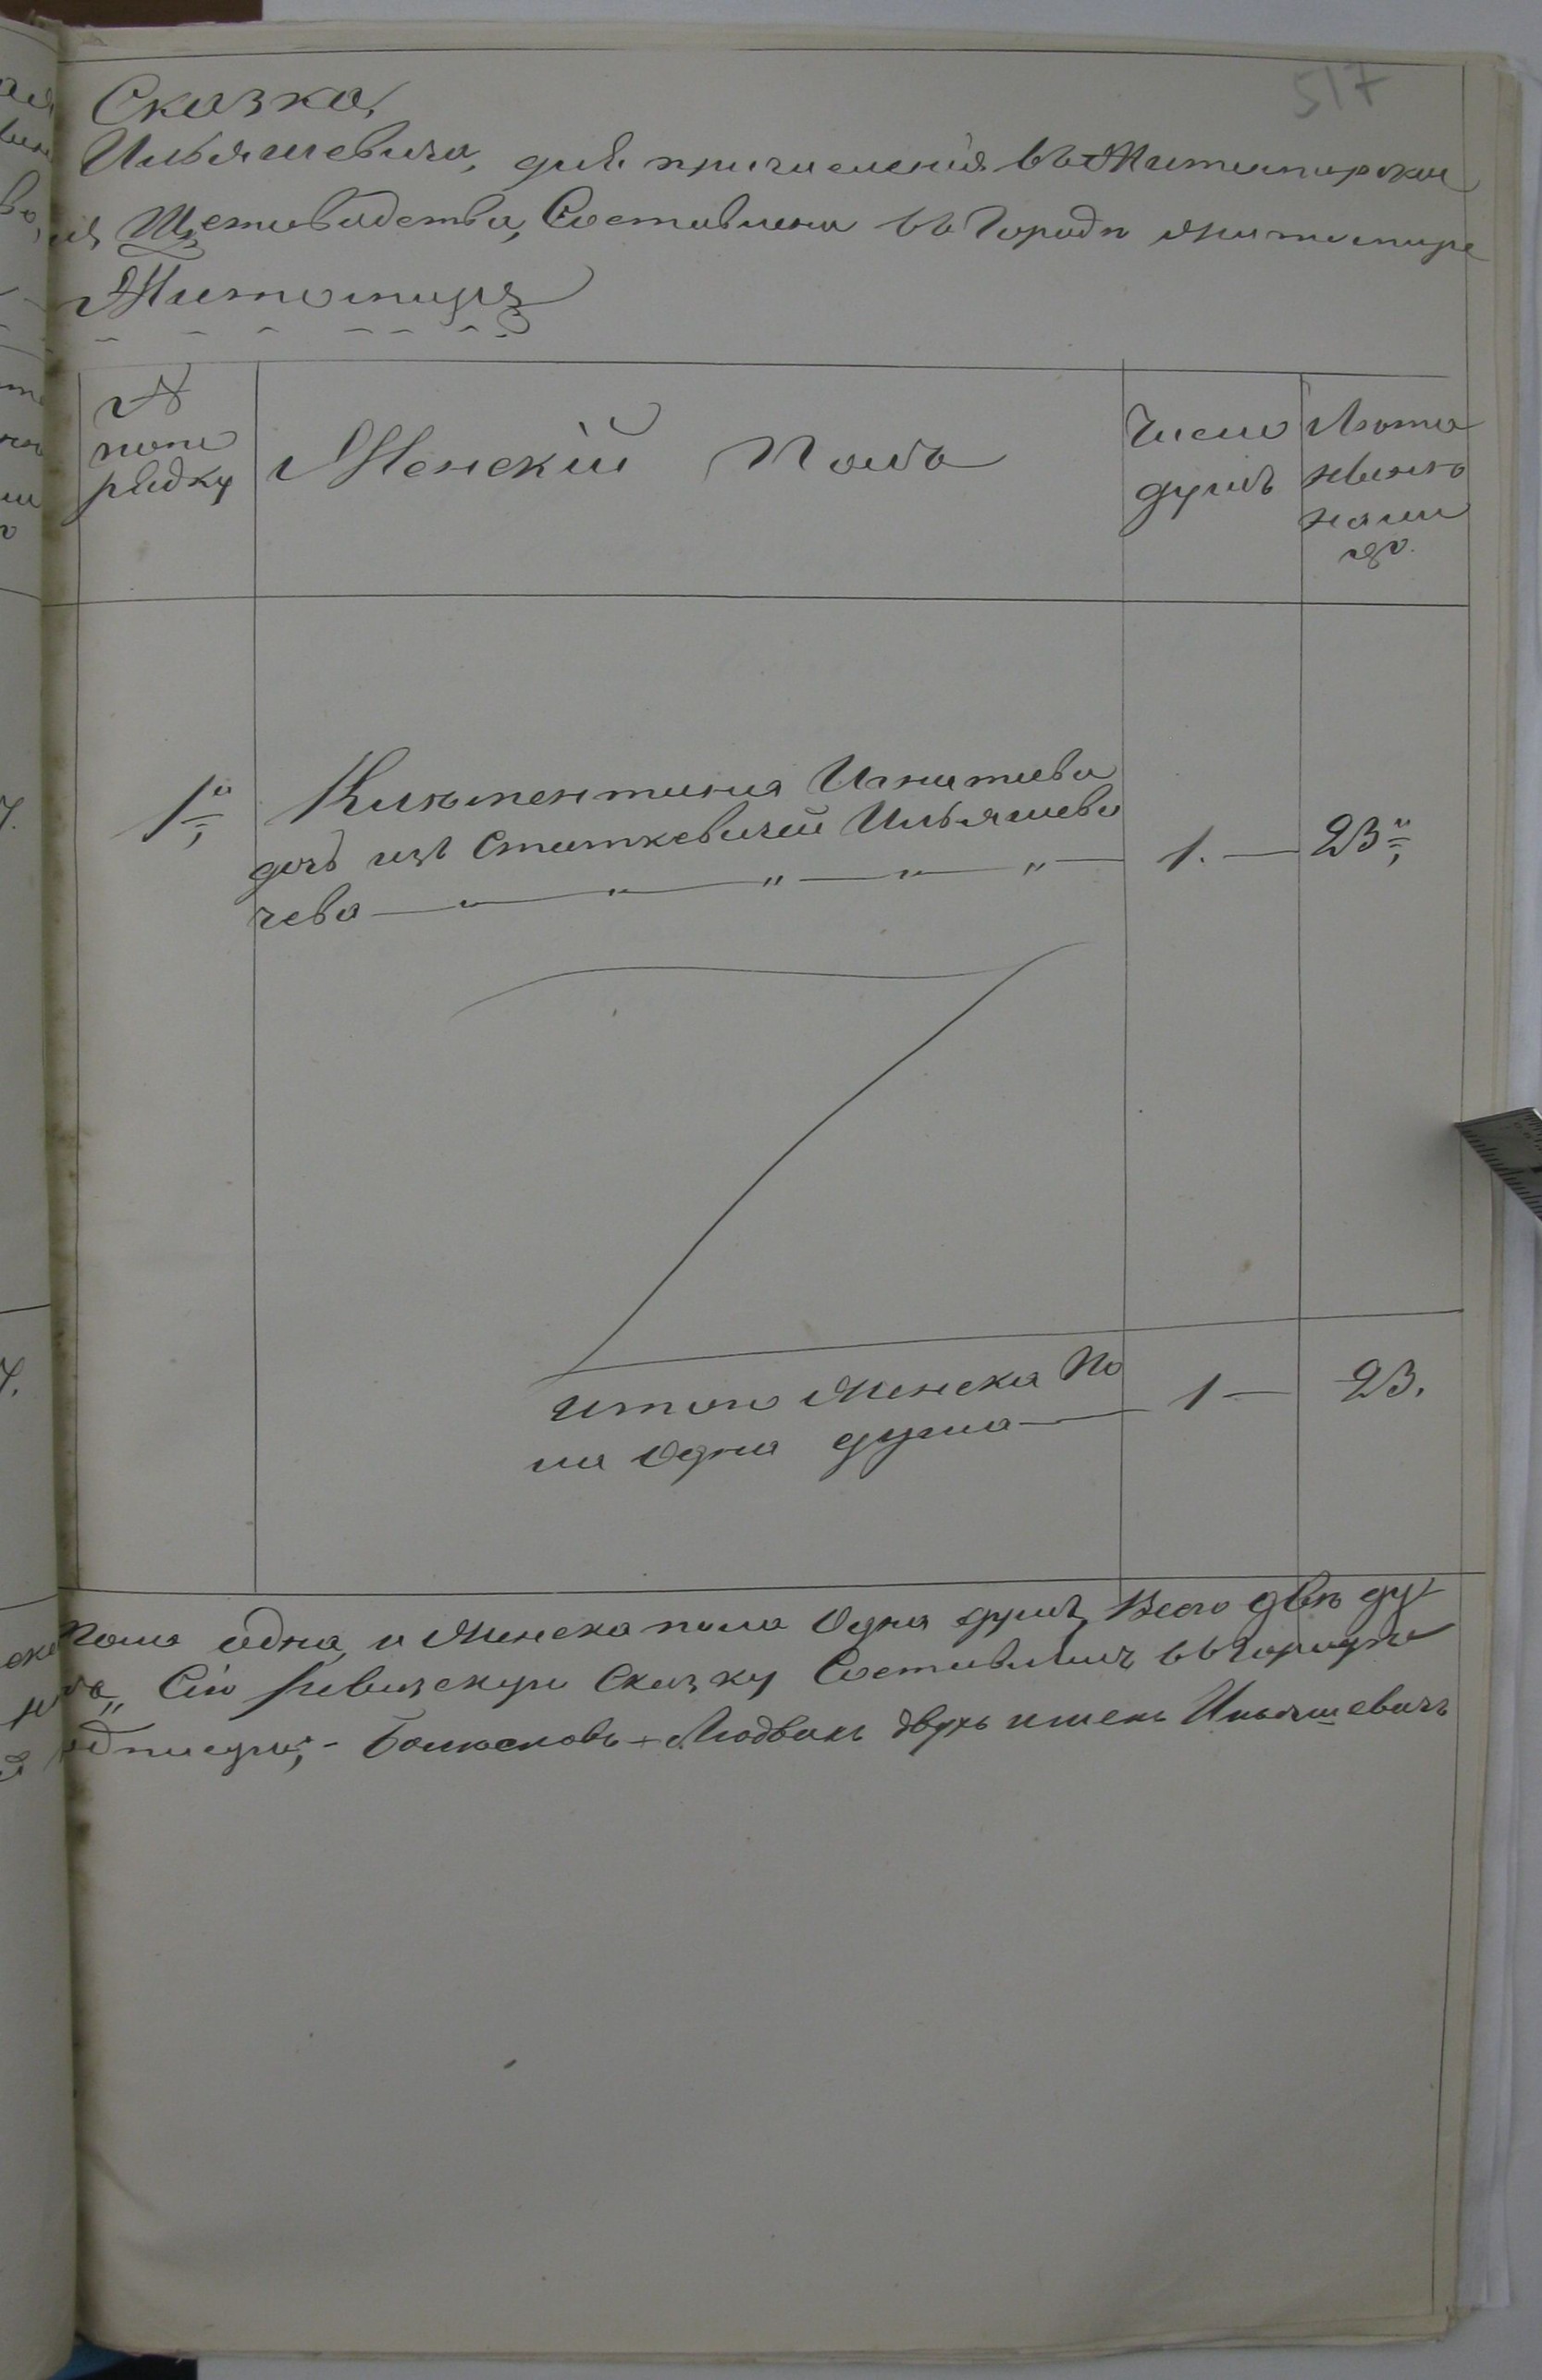 517
Сказка,
Ильяшевича, для причисленія въ Житомирски
Составлена въ Городѣ Житомире
Житомиръ
№
попо
рядку
Женскій Полъ
Число
душъ
Лѣта
нынѣ
на ли
цо.
1 Клементина Игнатіева
дочь изъ Статкевичей Ильяшеви
чева 1. 23
Итого Женска По
ла Одна душа 1 23.
пола одна, и Женска пола Одна душа, Всего двѣ ду
Сію Ревизскую Сказку Составилъ въ городѣ
Людвикъ двухъ именъ Ильяшевичъ